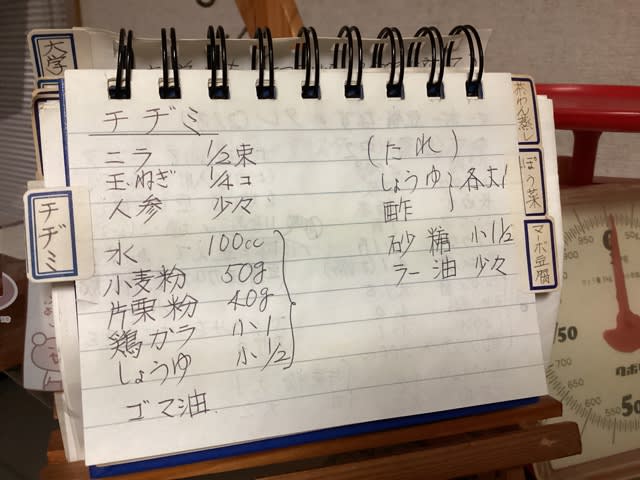 チヂミ
ニラ 1/2束
玉ねぎ 1/4コ
人参 少々
水 100cc
小麦粉 50g
片栗粉 40g
鶏ガラ 小1
しょうゆ 小1/2
ゴマ油
(たれ)
しょうゆ 各大1
酢
砂糖 小1/2
ラー油 少々
大学
チヂミ
茶わん蒸し
ぽう菜
マーボ豆腐